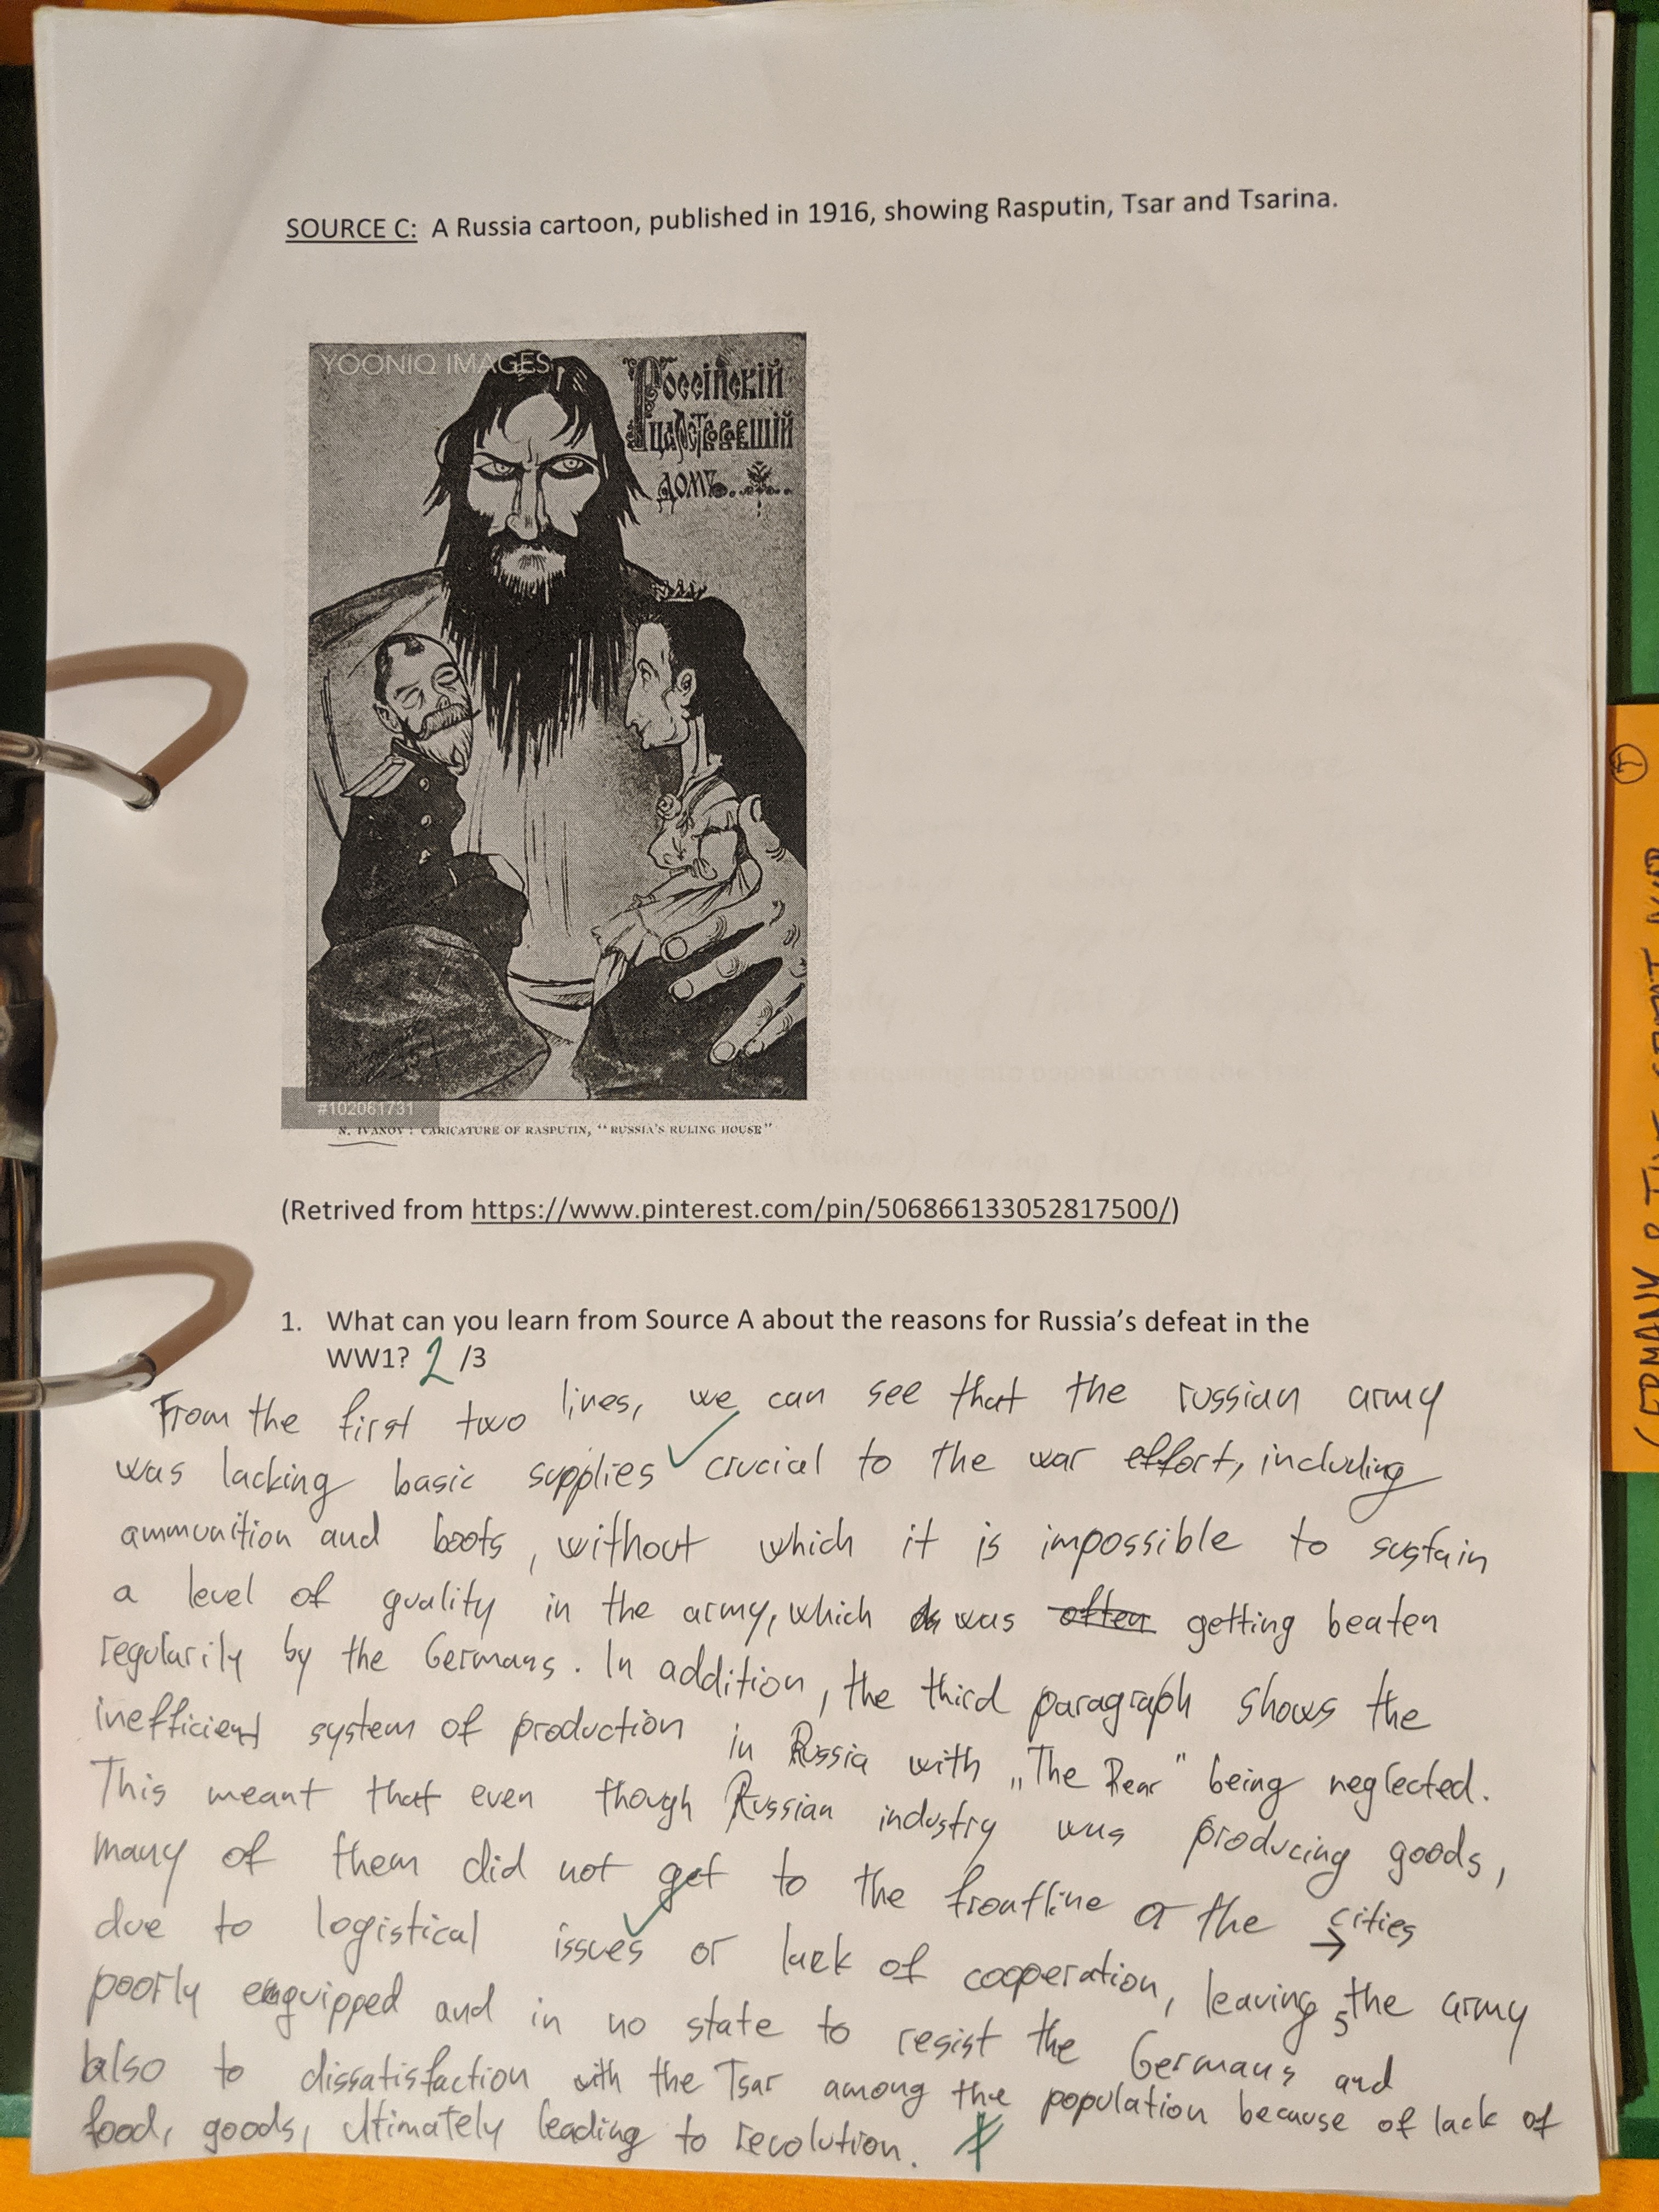 SOURCE C: A Russia cartoon, published in 1916, showing Rasputin, Tsar and Tsarina.
YOONIQ IMAGES
Россійскій
царствовавшій
домъ...
#102061731
N. IVANOV: CARICATURE OF RASPUTIN, "RUSSIA'S RULING HOUSE"
(Retrived from https://www.pinterest.com/pin/506866133052817500/)
1. What can you learn from Source A about the reasons for Russia's defeat in the
WW1? 2 /3
From the first two lines, we can see that the russian army
was lacking basic supplies crucial to the war effort, including
ammunition and boots, without which it is impossible to sustain
a level of quality in the army, which was often getting beaten
regularily by the Germans. In addition, the third paragraph shows the
inefficient system of production in Russia with „The Rear" being neglected.
This meant that even though Russian industry was producing goods,
many of them did not get to the frontline or the cities
due to logistical issues or lack of cooperation, leaving the army
poorly equipped and in no state to resist the Germans and
also to dissatisfaction with the Tsar among the population because of lack of
food, goods, ultimately leading to revolution.